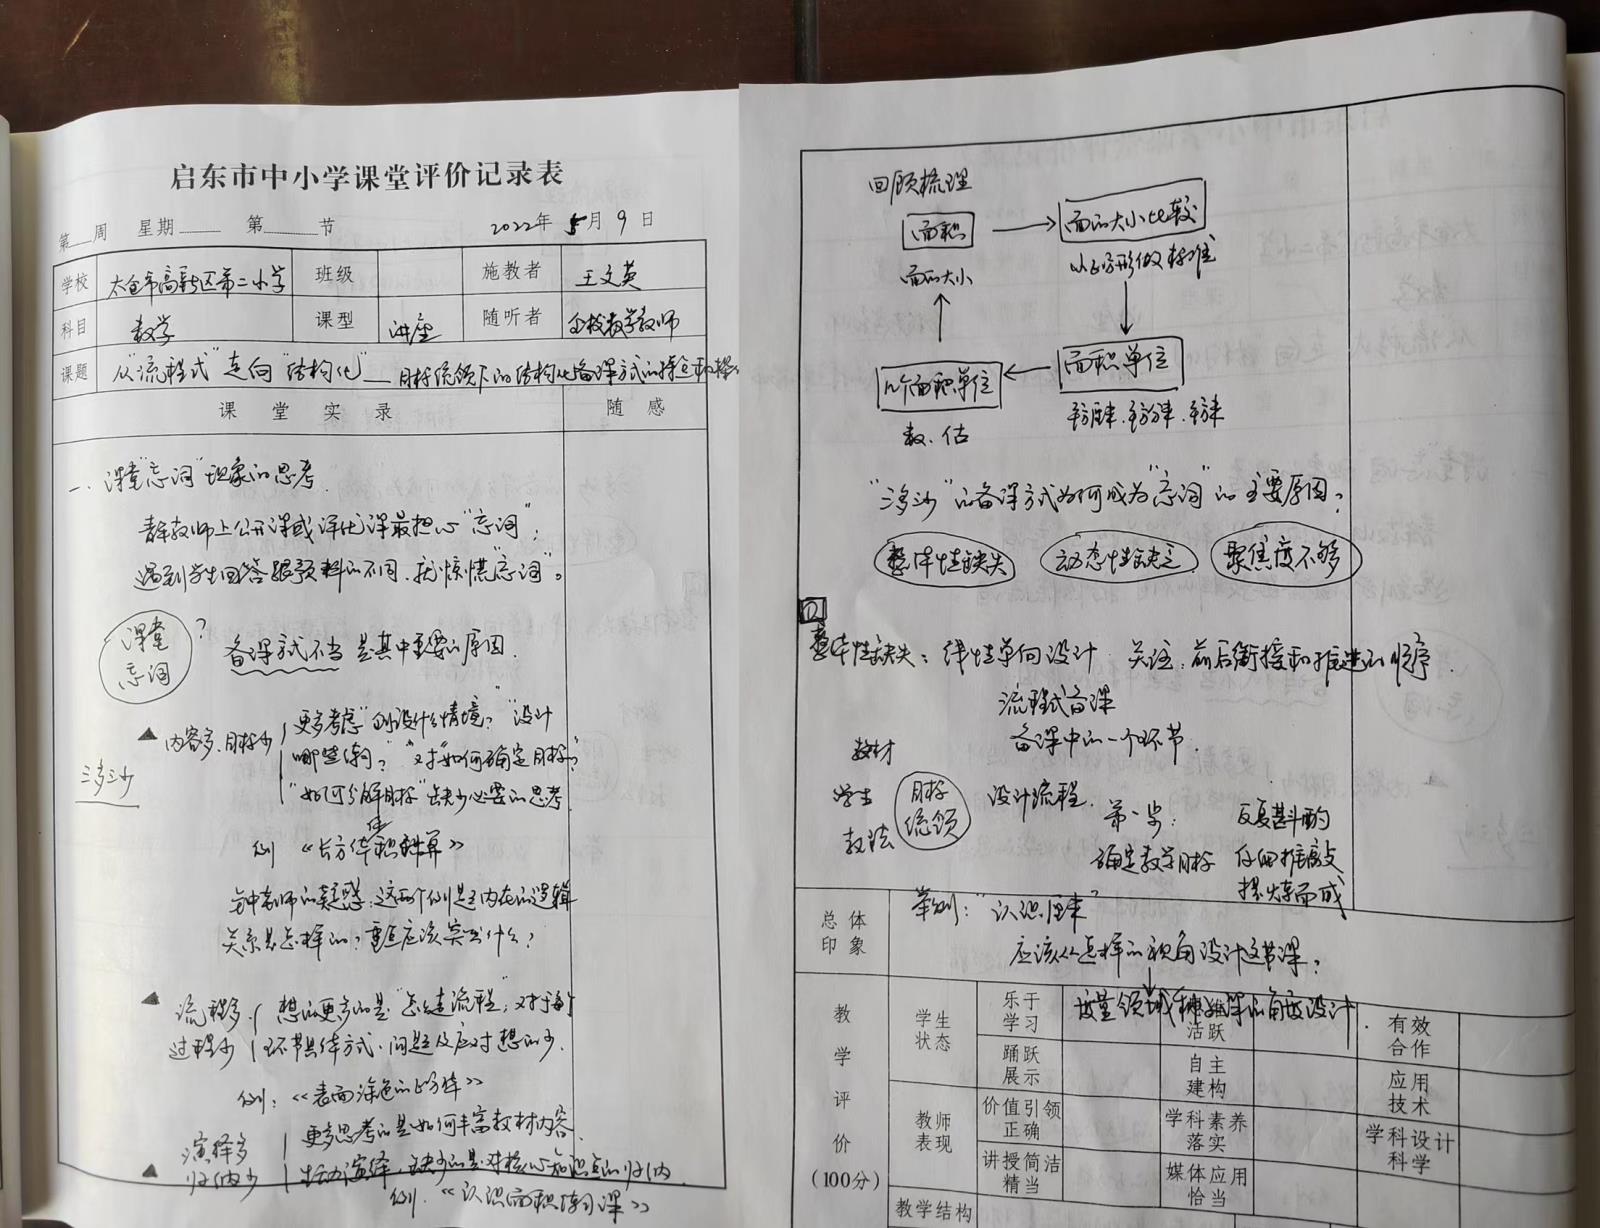 启东市中小学课堂评价记录表
第 周 星期 第 节 2022年5月9日
学校 太仓市高新区第二小学 班级 施教者 王文英
科目 数学 课型 讲座 随听者 全校数学教师
课题 从“流程式”走向“结构化”——目标统领下的结构化备课方式的特征和
课堂实录 随感
一、课堂“忘词”现象的思考
青年教师上公开课或评优课最担心“忘词”;
遇到学生回答跟预料的不同,就惊慌“忘词”。
课堂忘词?
备课方式不当是其中重要的原因.
三多三少
▲ 内容多、目标少
更多考虑“创设什么情境?”“设计
哪些练习?”对“如何确定目标?”
“如何分解目标”缺少必要的思考
例《长方体体积计算》
老师的疑惑:这两个例题内在的逻辑
关系是怎样的?重点应该突出什么?
▲ 流程多、过程少
想的更多的是“怎么走流程”;对于每个
环节具体方式、问题及应对想的少.
例:《表面涂色的正方体》
▲ 演绎多 归纳少
更多思考的是如何丰富教材内容
生动演绎,缺少的是对核心知识点的归纳
例.《认识面积练习课》
回顾梳理
面积 → 面的大小比较
面的大小 以正方形做标准
几个面积单位 ← 面积单位
数、估 平方厘米、平方分米、平方米
“三多三少”的备课方式为何成为“忘词”的主要原因?
整体性缺失 动态性缺乏 聚焦度不够
①
整体性缺失:线性单向设计 关注:前后衔接和推进的顺序.
流程式备课
备课中的一个环节.
教材
学生
教法
目标统领
设计流程.
第一步:
确定教学目标
反复斟酌
仔细推敲
提炼而成
举例:“认识厘米”
应该从怎样的视角设计这节课?
总体印象
度量领域 课的角度设计.
教学评价(100分)
学生状态 乐于学习 活跃 有效合作
踊跃展示 自主建构 应用技术
教师表现 价值引领正确 学科素养落实 学科设计科学
讲授简洁精当 媒体应用恰当
教学结构